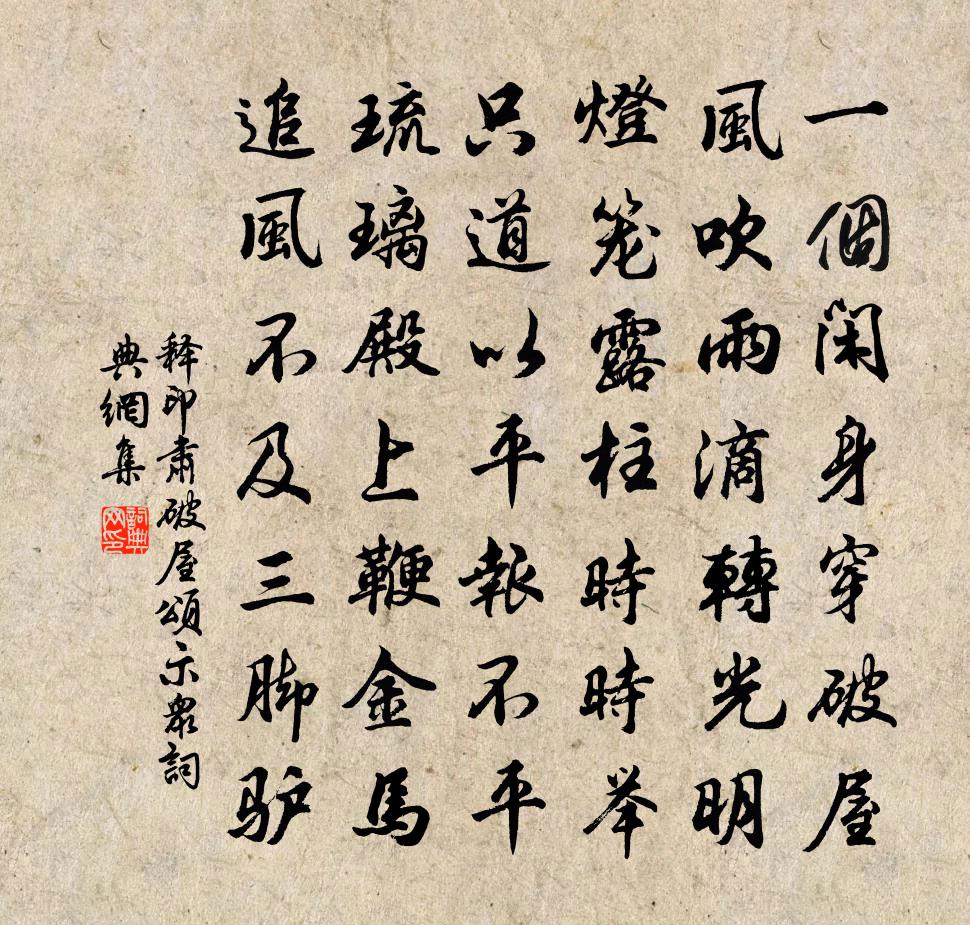 一個閑身穿破屋
風吹雨滴轉光明
燈笼露柱時時举
只道以平報不平
琉璃殿上鞭金馬
追風不及三脚驴
释印肃破屋頌示衆詞
典網集
詞典网印